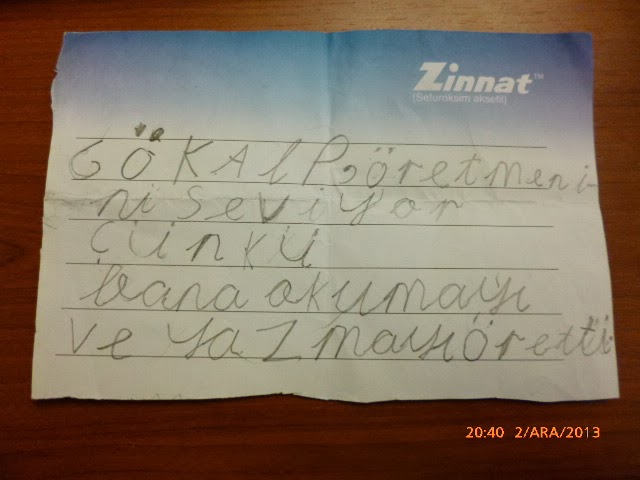 Zinnat™
(Sefuroksim aksetil)
GÖKAlP öretmeni
ni seviyor
ÇÜNKÜ
bana okumayı
ve yazmayı öretti
20:40 2/ARA/2013